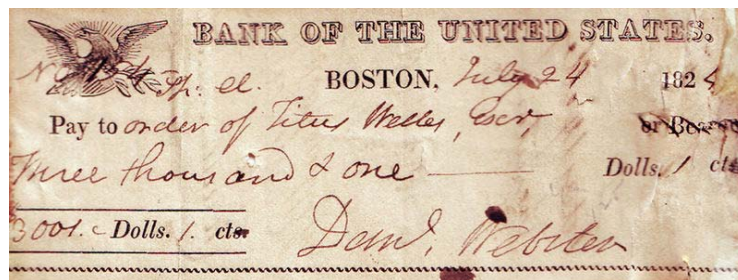 BANK OF THE UNITED STATES.
BOSTON, July 24 1824
Pay to order of Titus Welles, Esqr, or Bearer
Three thousand & one Dolls. 1 cts
3001. Dolls. 1. cts.
Danl. Webster